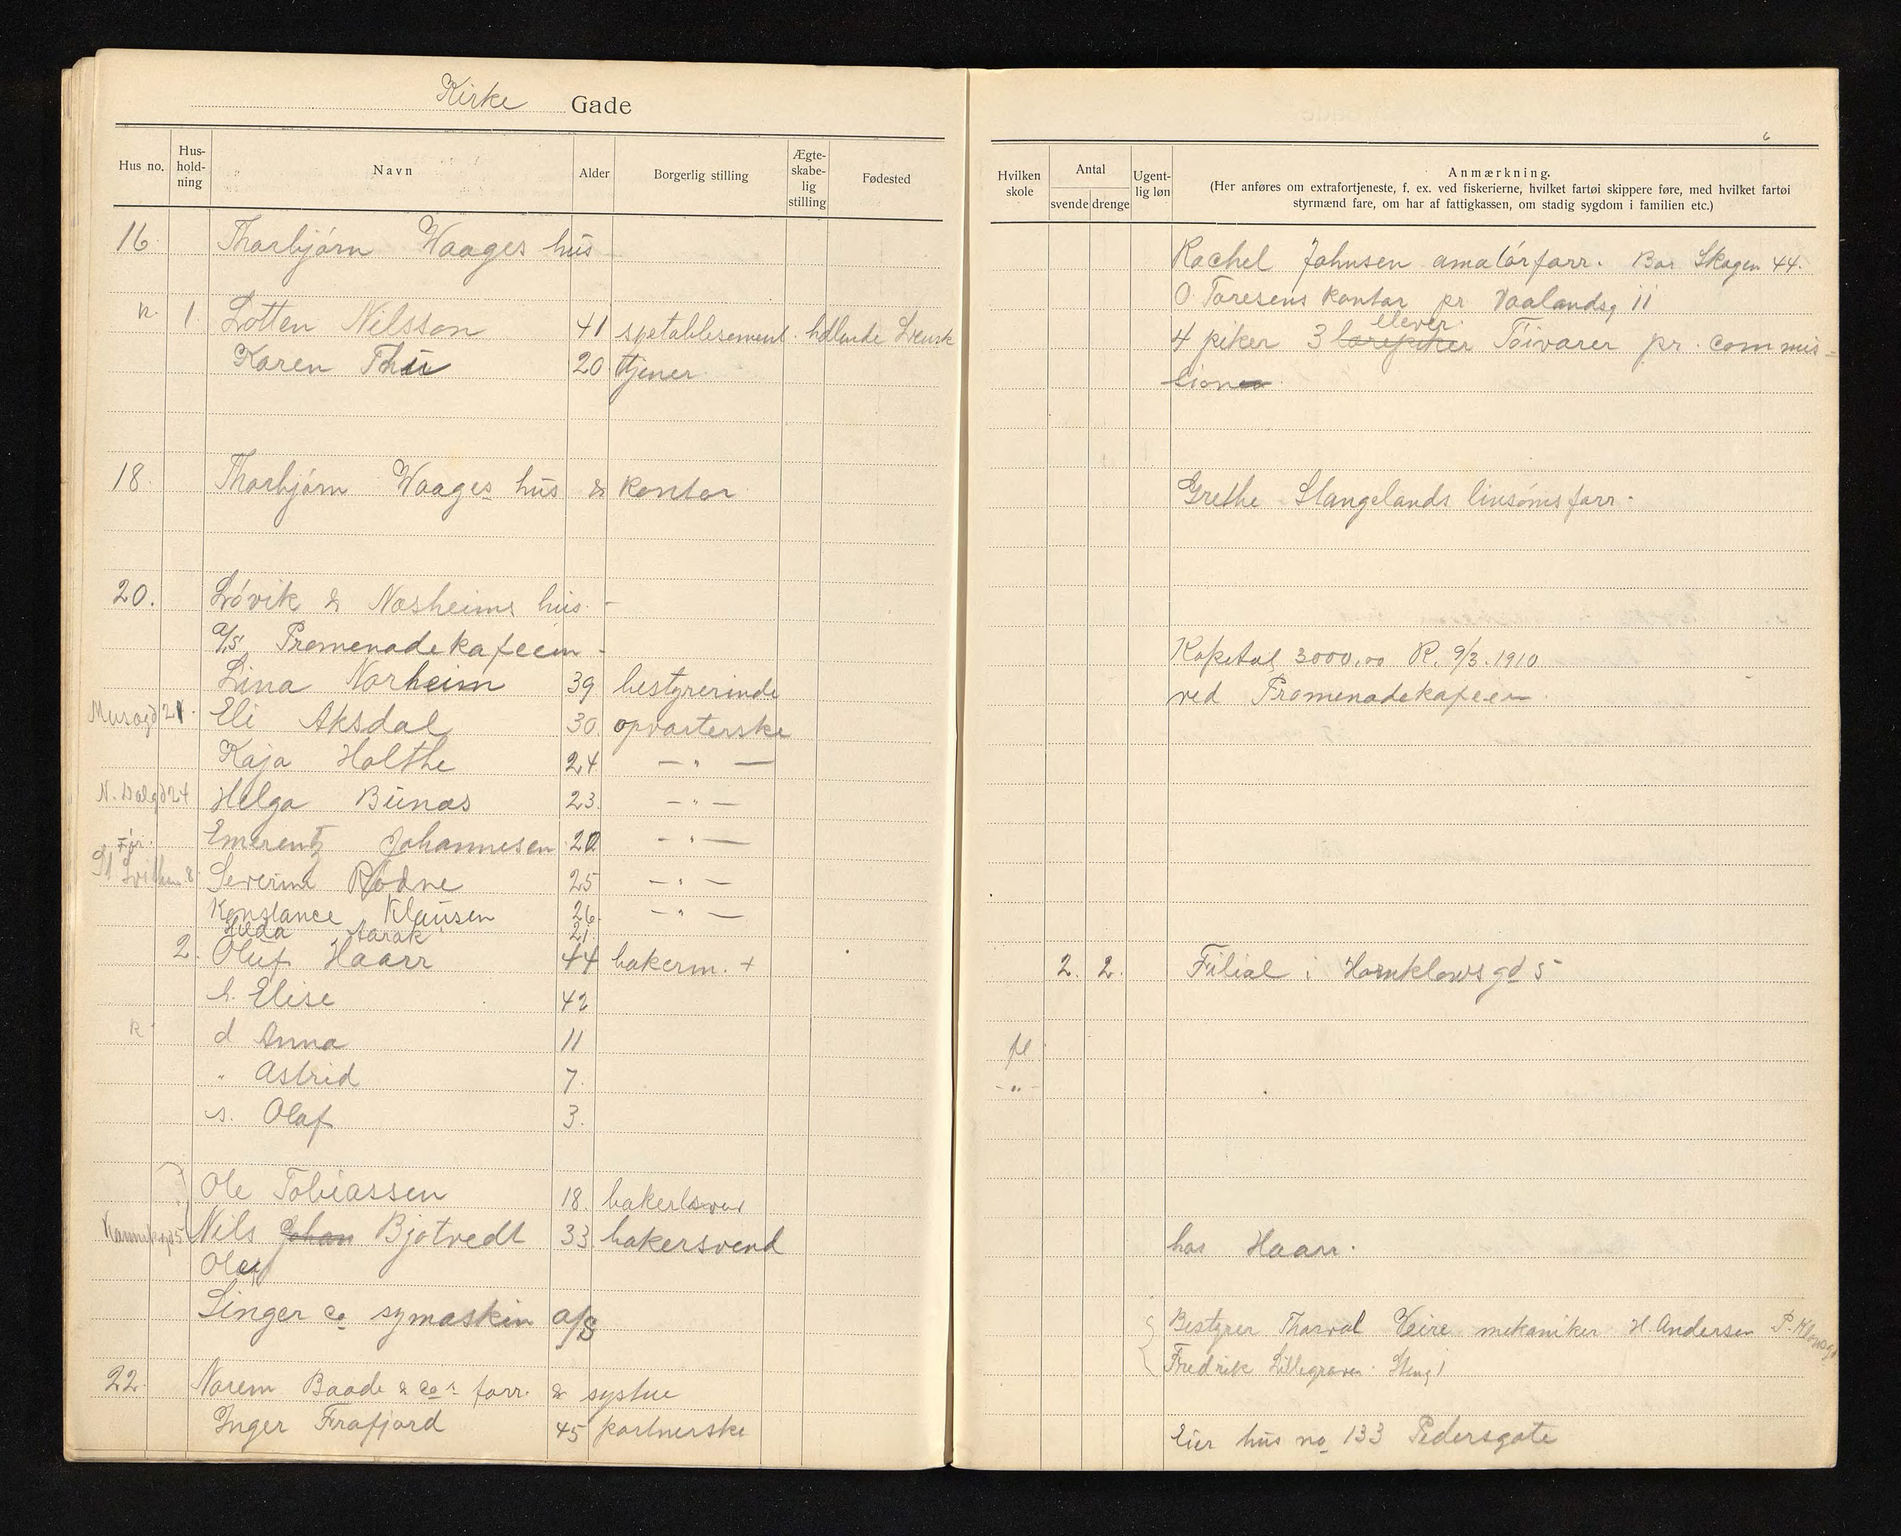 Kirke Gade
Hus no. Hus-hold-ning Navn Alder Borgerlig stilling Ægte-skabe-lig stilling Fødested
16. Thorbjørn Waages hus
1. Lotten Nilsson 41
Karen Thu 20 tjener
18. Thorbjørn Waages hus & kontor
20. Løvik & Næsheims hus.
A/S Promenadekafeen
Lina Norheim 39 bestyrerinde
21. Eli Aksdal 30. opvarterske
Kaja Holthe 24 — " —
24 Helga Bunæs 23. — " —
Emerentz Johannesen — " —
8 Severine Rødne 25 — " —
Konstance Klausen 26. — " —
Hilda Aarak 21.
2. Oluf Haarr 44 bakerm. +
h. Elise 42
d Anna 11
" Astrid 7.
s. Olaf 3.
Ole Tobiassen 18.
Nils Johan Bjotvedt 33. bakersvend
Olaf
Singer Co symaskin a/s
22. Norem Baade & Co's forr. & systue
Inger Frafjord 45 partnerske
6
Hvilken skole Antal svende drenge Ugent-lig løn Anmærkning.
(Her anføres om extrafortjeneste, f. ex. ved fiskerierne, hvilket fartøi skippere føre, med hvilket fartøi
styrmænd fare, om har af fattigkassen, om stadig sygdom i familien etc.)
Rachel Johnsen amatørforr. Bor Skagen 44.
O. Toresens kontor pr Vaalandsg 11
elever
4 piker 3 lærepiker Tøivarer pr. commis-
sion
Grethe Stangelands linsømsforr.
Kapital 3000,00 R. 9/3.1910
ved Promenadekafeen
2. 2. Filial i Hornklowsgd 5
fl.
- " -
hos Haarr.
Bestyrer Thorval Veire mekaniker H. Andersen
Fredrik Lillegraven
Eier hus no 133 Pedersgate